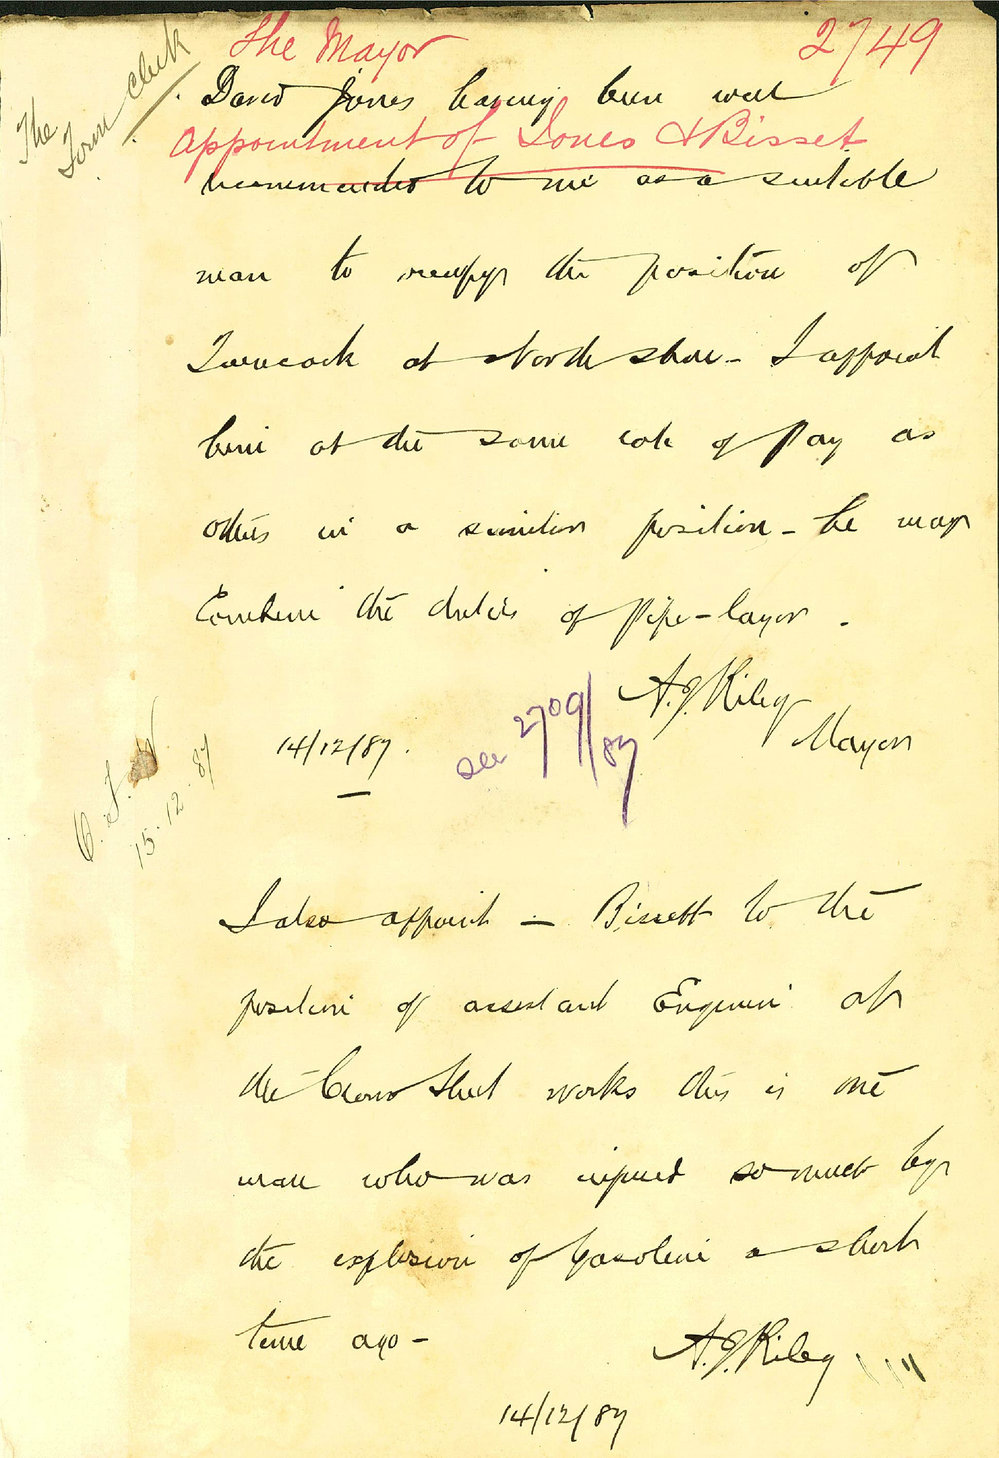 The Mayor
2749
The
Town Clerk
David Jones having been well
Appointment of Jones & Bisset
recommended to me as a suitable
man to occupy the position of
Turncock at North Shore - I appoint
him at the same rate of pay as
others in a similar position - he may
Combine the duties of pipe-layer.
A.J. Riley
Mayor
14/12/87.
see 2709/87
15.12.87
I also appoint - Bissett to the
position of assistant Engineer at
the Crown Street works this is the
man who was injured so much by
the explosion of Gasoline a short
time ago -
A.J. Riley
14/12/87